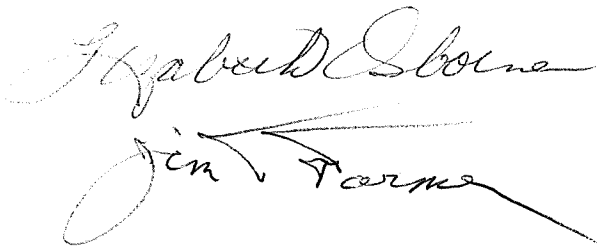 Elizabeth Osborne
Jim Farmer